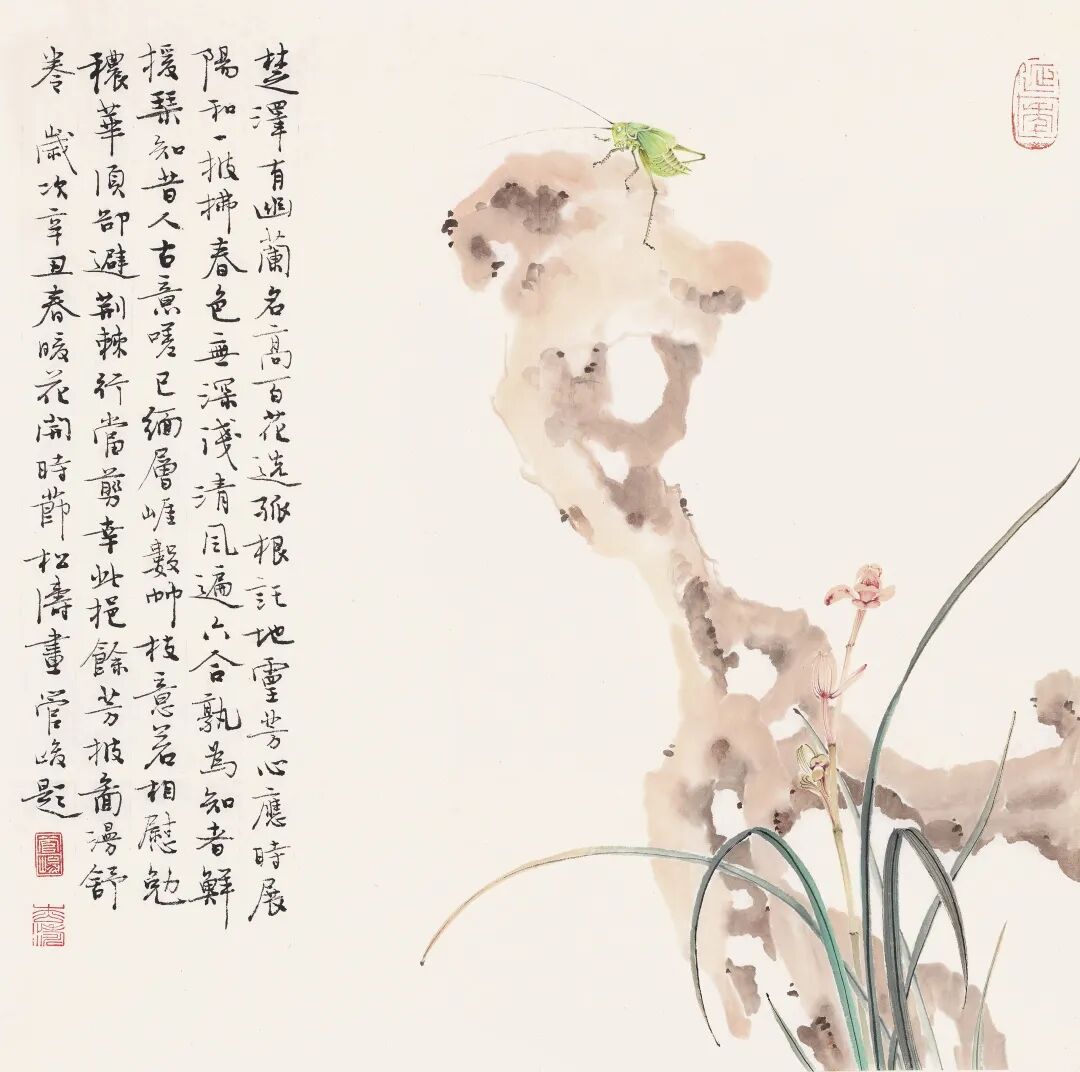 楚澤有幽蘭名高百花選孤根託地靈芳心應時展
陽和一披拂春色無深淺清風遍六合孰為知者鮮
援琴知昔人古意嗟已緬層崕數枝意若相慰勉
穠華須卻避荆棘行當剪幸此挹餘芳披圖漫舒
卷 歲次辛丑春暖花開時節松濤畫管峻題